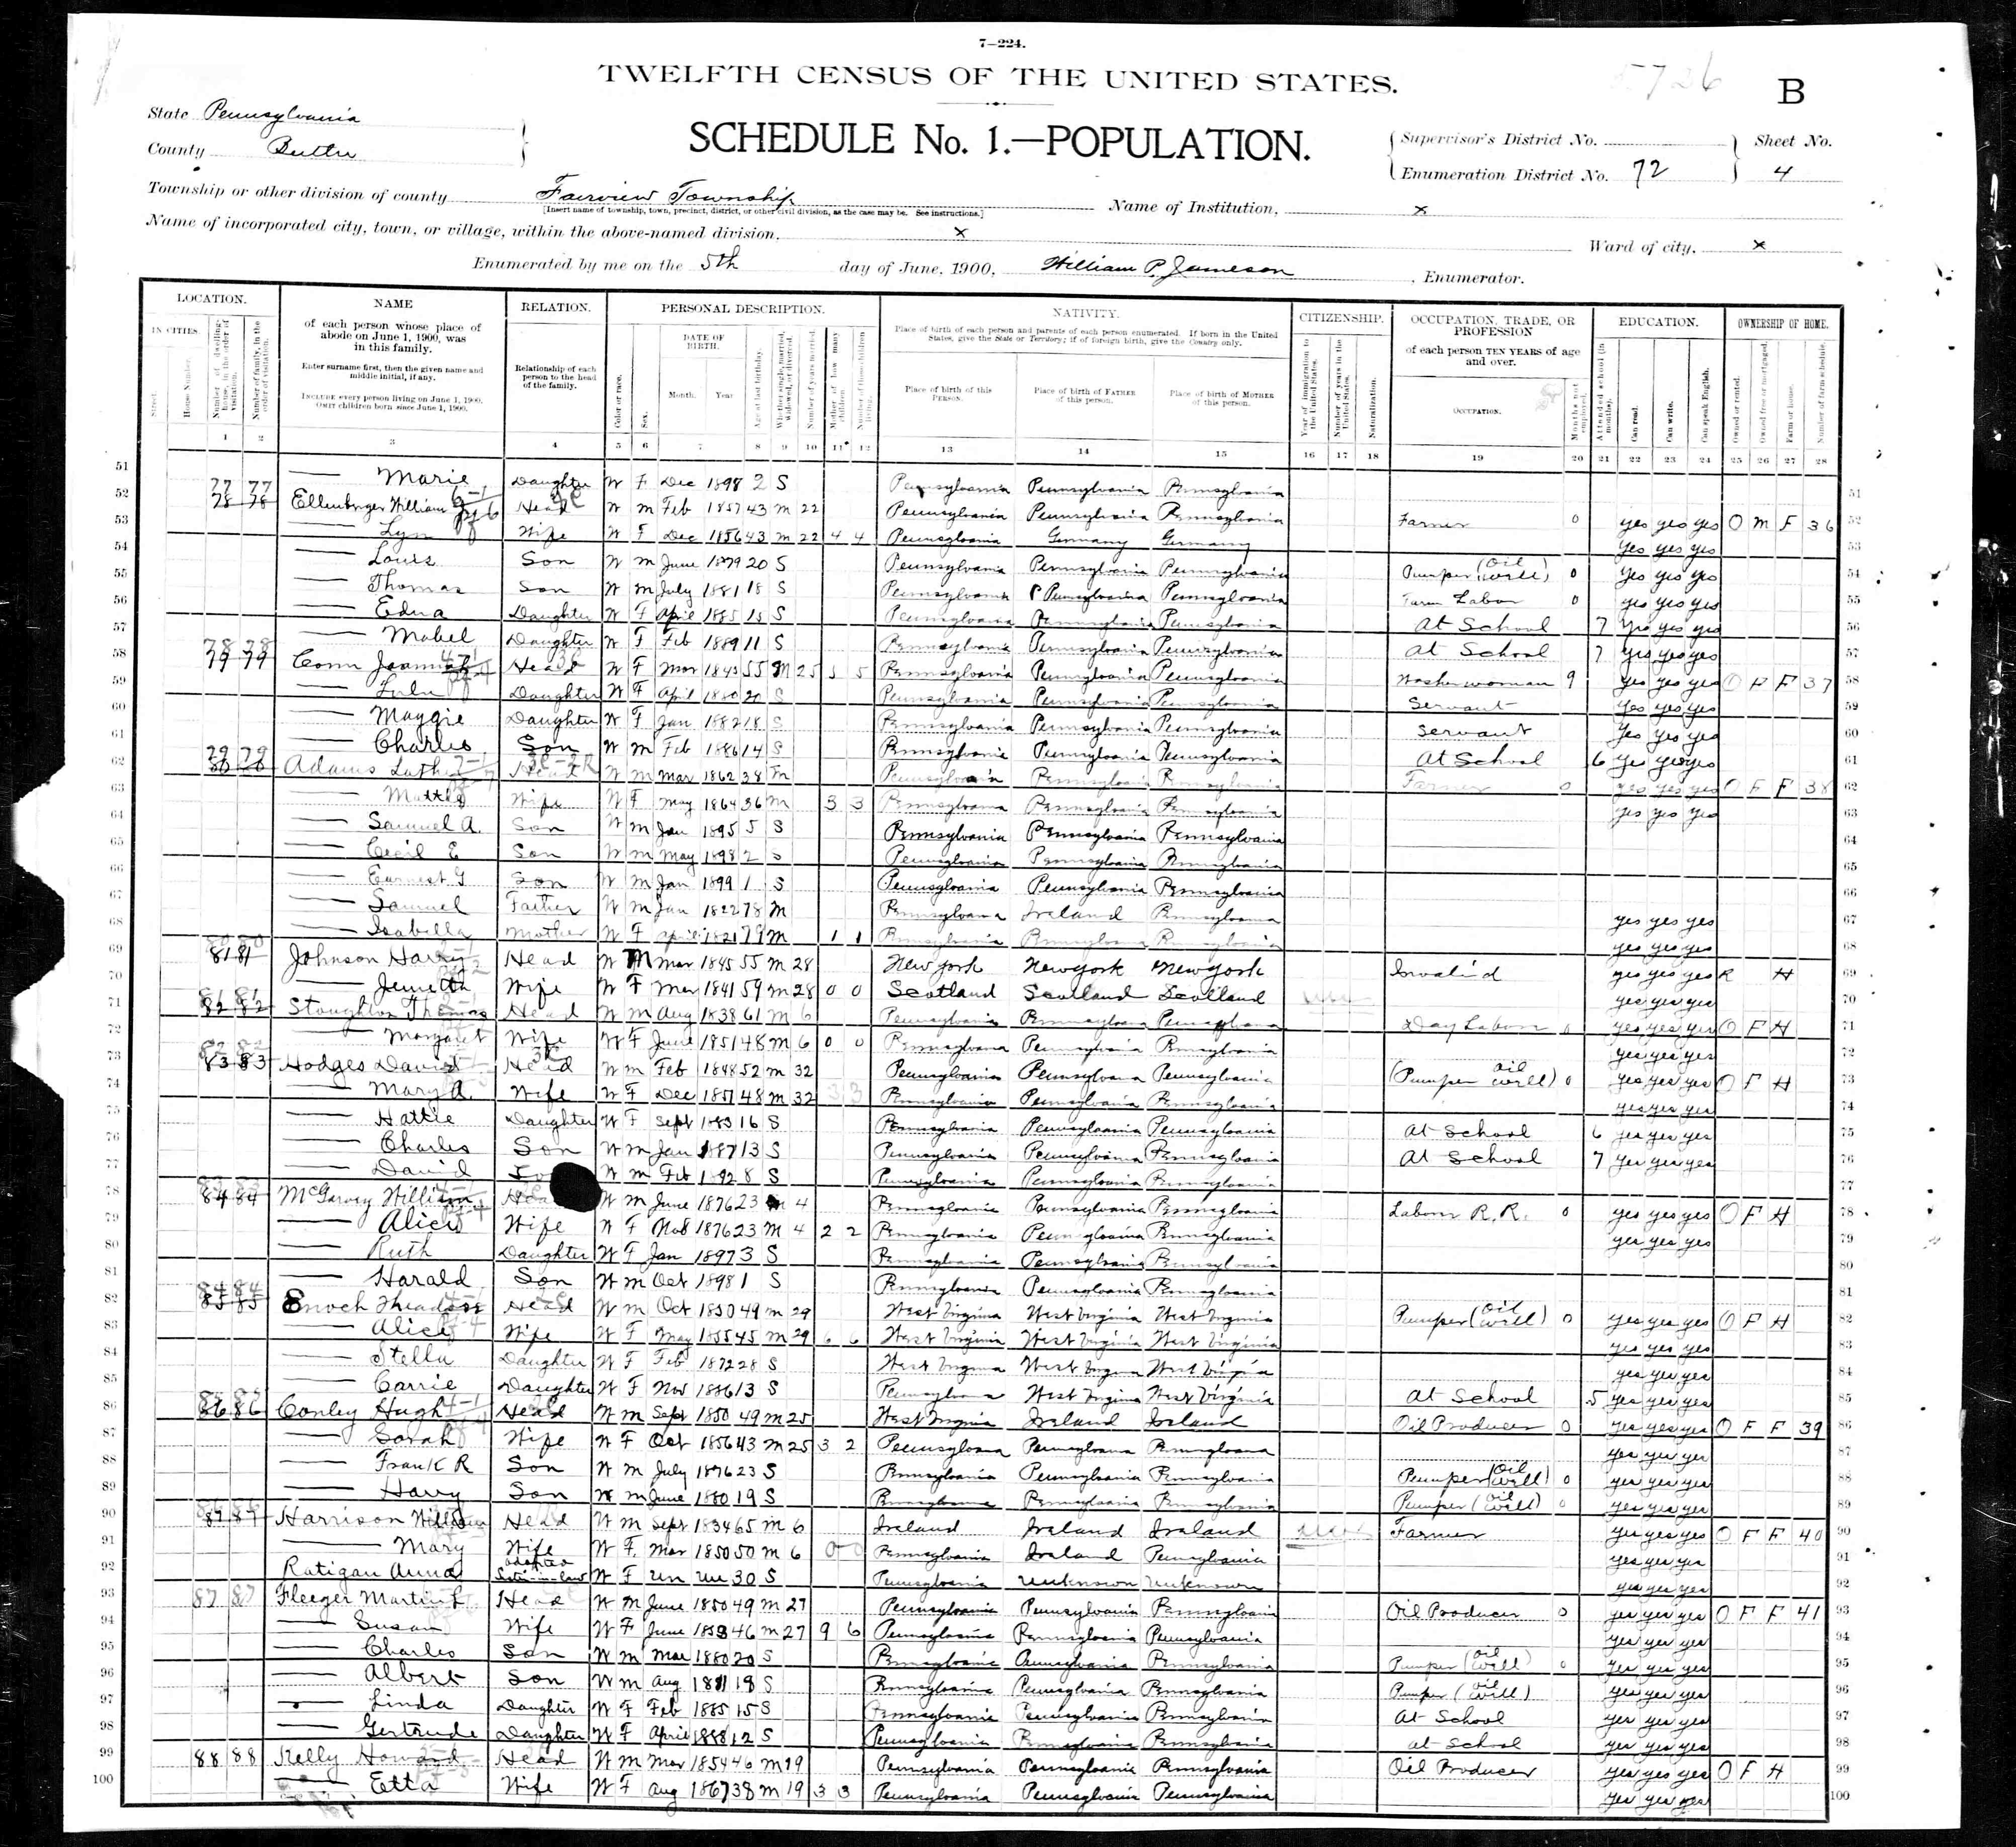 7—224.
TWELFTH CENSUS OF THE UNITED STATES.
B
State Pennsylvania
County Butler
SCHEDULE No. 1.—POPULATION.
Supervisor's District No.
Enumeration District No. 72
Sheet No.
4
Township or other division of county Fairview Township
[Insert name of township, town, precinct, district, or other civil division, as the case may be. See instructions.]
Name of Institution, x
Name of incorporated city, town, or village, within the above-named division, x
Ward of city, x
Enumerated by me on the 5th day of June, 1900, William P. Jameson, Enumerator.
LOCATION. NAME RELATION. PERSONAL DESCRIPTION. NATIVITY. CITIZENSHIP. OCCUPATION, TRADE, OR PROFESSION EDUCATION. OWNERSHIP OF HOME.
IN CITIES. Street. House Number. Number of dwelling-house, in the order of visitation. Number of family, in the order of visitation.
of each person whose place of abode on June 1, 1900, was in this family.
Enter surname first, then the given name and middle initial, if any.
INCLUDE every person living on June 1, 1900. OMIT children born since June 1, 1900.
Relationship of each person to the head of the family.
Color or race. Sex. DATE OF BIRTH. Month. Year Age at last birthday. Whether single, married, widowed, or divorced. Number of years married. Mother of how many children. Number of these children living.
Place of birth of each person and parents of each person enumerated. If born in the United States, give the State or Territory; if of foreign birth, give the Country only.
Place of birth of this PERSON. Place of birth of FATHER of this person. Place of birth of MOTHER of this person.
Year of immigration to the United States. Number of years in the United States. Naturalization.
of each person TEN YEARS of age and over.
OCCUPATION. Months not employed.
Attended school (in months). Can read. Can write. Can speak English.
Owned or rented. Owned free or mortgaged. Farm or house. Number of farm schedule.
1 2 3 4 5 6 7 8 9 10 11 12 13 14 15 16 17 18 19 20 21 22 23 24 25 26 27 28
51 Marie Daughter W F Dec 1898 2 S Pennsylvania Pennsylvania Pennsylvania 51
52 77 77 78 78 Ellenberger William Head W M Feb 1857 43 M 22 Pennsylvania Pennsylvania Pennsylvania Farmer 0 yes yes yes O M F 36 52
53 Wife W F Dec 1856 43 M 22 4 4 Pennsylvania Germany Germany yes yes yes 53
54 Louis Son W M June 1879 20 S Pennsylvania Pennsylvania Pennsylvania Pumper (Oil well) 0 yes yes yes 54
55 Thomas Son W M July 1881 18 S Pennsylvania Pennsylvania Pennsylvania Farm Labor 0 yes yes yes 55
56 Edna Daughter W F April 1885 15 S Pennsylvania Pennsylvania Pennsylvania At School 7 yes yes yes 56
57 Mabel Daughter W F Feb 1889 11 S Pennsylvania Pennsylvania Pennsylvania At School 7 yes yes yes 57
58 78 78 79 79 Conn Head W F Mar 55 M 25 5 5 Pennsylvania Pennsylvania Pennsylvania Washerwoman 9 yes yes yes O F 37 58
59 Lulu Daughter W F April 1880 20 S Pennsylvania Pennsylvania Pennsylvania Servant yes yes yes 59
60 Maggie Daughter W F Jan 1882 18 S Pennsylvania Pennsylvania Pennsylvania Servant yes yes yes 60
61 Charles Son W M Feb 1886 14 S Pennsylvania Pennsylvania Pennsylvania At School 6 yes yes yes 61
62 79 79 Adams Head W M Mar 1862 38 M Pennsylvania Pennsylvania Pennsylvania Farmer 0 yes yes yes O F F 38 62
63 Wife W F May 1864 36 M 3 3 Pennsylvania Pennsylvania Pennsylvania yes yes yes 63
64 Samuel A. Son W M Jan 1895 5 S Pennsylvania Pennsylvania Pennsylvania 64
65 Cecil E Son W M May 1898 2 S Pennsylvania Pennsylvania Pennsylvania 65
66 Earnest G Son W M Jan 1899 1 S Pennsylvania Pennsylvania Pennsylvania 66
67 Samuel Father W M Jan 1822 78 M Pennsylvania Ireland Pennsylvania yes yes yes 67
68 Isabella Mother W F April 1821 79 M 1 1 Pennsylvania Pennsylvania Pennsylvania yes yes yes 68
69 81 81 Johnson Harry Head W M Mar 1845 55 M 28 New York New York New York Invalid yes yes yes R H 69
70 Wife W F Mar 1841 59 M 28 0 0 Scotland Scotland Scotland yes yes yes 70
71 81 81 82 82 Stoughton Thomas Head W M Aug 1838 61 M 6 Pennsylvania Pennsylvania Pennsylvania Day Labor 0 yes yes yes O F H 71
72 Margaret Wife W F June 1851 48 M 6 0 0 Pennsylvania Pennsylvania Pennsylvania yes yes yes 72
73 83 83 Hodges David Head W M Feb 1848 52 M 32 Pennsylvania Pennsylvania Pennsylvania (Pumper Oil well) 0 yes yes yes O F H 73
74 Mary A. Wife W F Dec 1851 48 M 32 3 3 Pennsylvania Pennsylvania Pennsylvania yes yes yes 74
75 Hattie Daughter W F Sept 1883 16 S Pennsylvania Pennsylvania Pennsylvania At School 6 yes yes yes 75
76 Charles Son W M Jan 1887 13 S Pennsylvania Pennsylvania Pennsylvania At School 7 yes yes yes 76
77 David W M Feb 1892 8 S Pennsylvania Pennsylvania Pennsylvania 77
78 84 84 McGarvey William Head W M June 1876 23 M 4 Pennsylvania Pennsylvania Pennsylvania Labor R.R. 0 yes yes yes O F H 78
79 Alice Wife W F Nov 1876 23 M 4 2 2 Pennsylvania Pennsylvania Pennsylvania yes yes yes 79
80 Ruth Daughter W F Jan 1897 3 S Pennsylvania Pennsylvania Pennsylvania 80
81 Harald Son W M Oct 1898 1 S Pennsylvania Pennsylvania Pennsylvania 81
82 84 84 85 85 Enoch Head W M Oct 1850 49 M 29 West Virginia West Virginia West Virginia Pumper (Oil well) 0 yes yes yes O F H 82
83 Alice Wife W F May 1855 45 M 29 6 6 West Virginia West Virginia West Virginia yes yes yes 83
84 Stella Daughter W F Feb 1872 28 S West Virginia West Virginia West Virginia yes yes yes 84
85 Carrie Daughter W F Nov 1886 13 S Pennsylvania West Virginia West Virginia At School 5 yes yes yes 85
86 86 86 Conley Hugh Head W M Sept 1850 49 M 25 West Virginia Ireland Ireland Oil Producer 0 yes yes yes O F F 39 86
87 Sarah Wife W F Oct 1856 43 M 25 3 2 Pennsylvania Pennsylvania Pennsylvania yes yes yes 87
88 Frank R Son W M July 1876 23 S Pennsylvania Pennsylvania Pennsylvania Pumper (Oil well) 0 yes yes yes 88
89 Harry Son W M June 1880 19 S Pennsylvania Pennsylvania Pennsylvania Pumper (Oil well) 0 yes yes yes 89
90 86 86 87 87 Harrison William Head W M Sept 1834 65 M 6 Ireland Ireland Ireland Farmer yes yes yes O F F 40 90
91 Mary Wife W F Mar 1850 50 M 6 0 0 Pennsylvania Ireland Pennsylvania yes yes yes 91
92 Ratigan Anna adopted Sister-in-law W F Un Un 30 S Pennsylvania Unknown Unknown yes yes yes 92
93 87 87 Fleeger Martin L Head W M June 1850 49 M 27 Pennsylvania Pennsylvania Pennsylvania Oil Producer 0 yes yes yes O F F 41 93
94 Susan Wife W F June 1853 46 M 27 9 6 Pennsylvania Pennsylvania Pennsylvania yes yes yes 94
95 Charles Son W M Mar 1880 20 S Pennsylvania Pennsylvania Pennsylvania Pumper (Oil well) 0 yes yes yes 95
96 Albert Son W M Aug 1881 18 S Pennsylvania Pennsylvania Pennsylvania Pumper (Oil well) yes yes yes 96
97 Linda Daughter W F Feb 1885 15 S Pennsylvania Pennsylvania Pennsylvania At School yes yes yes 97
98 Gertrude Daughter W F April 1888 12 S Pennsylvania Pennsylvania Pennsylvania at School yes yes yes 98
99 88 88 Kelly Howard Head W M Mar 1854 46 M 19 Pennsylvania Pennsylvania Pennsylvania Oil Producer yes yes yes O F H 99
100 Etta Wife W F Aug 38 M 19 3 3 Pennsylvania Pennsylvania Pennsylvania yes yes yes 100